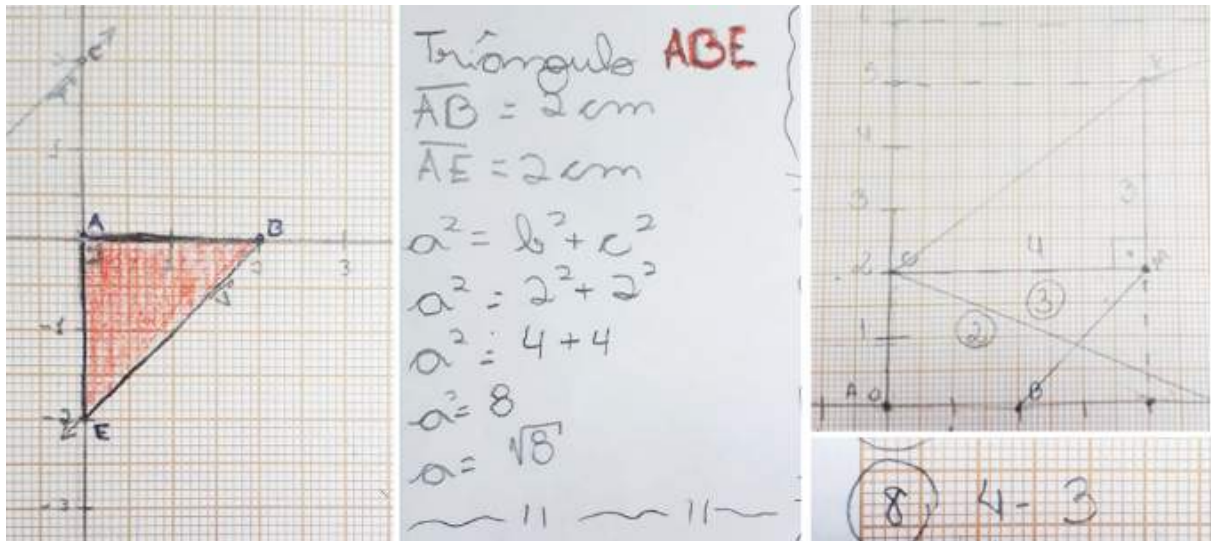 C
1
A
B
1
2
3
-1
-2
E
-3
Triângulo ABE
AB = 2 cm
AE = 2 cm
a² = b² + c²
a² = 2² + 2²
a² = 4 + 4
a² = 8
a = √8
5
4
3
3
4
2
3
1
2
A 0 B
8 4 - 3